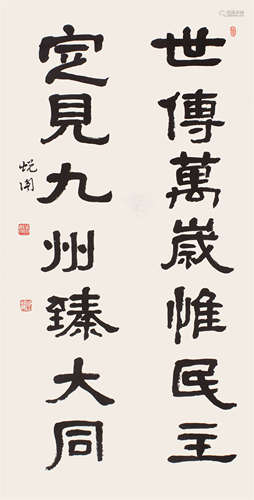 世傳萬歲惟民主
定見九州臻大同
悦闻